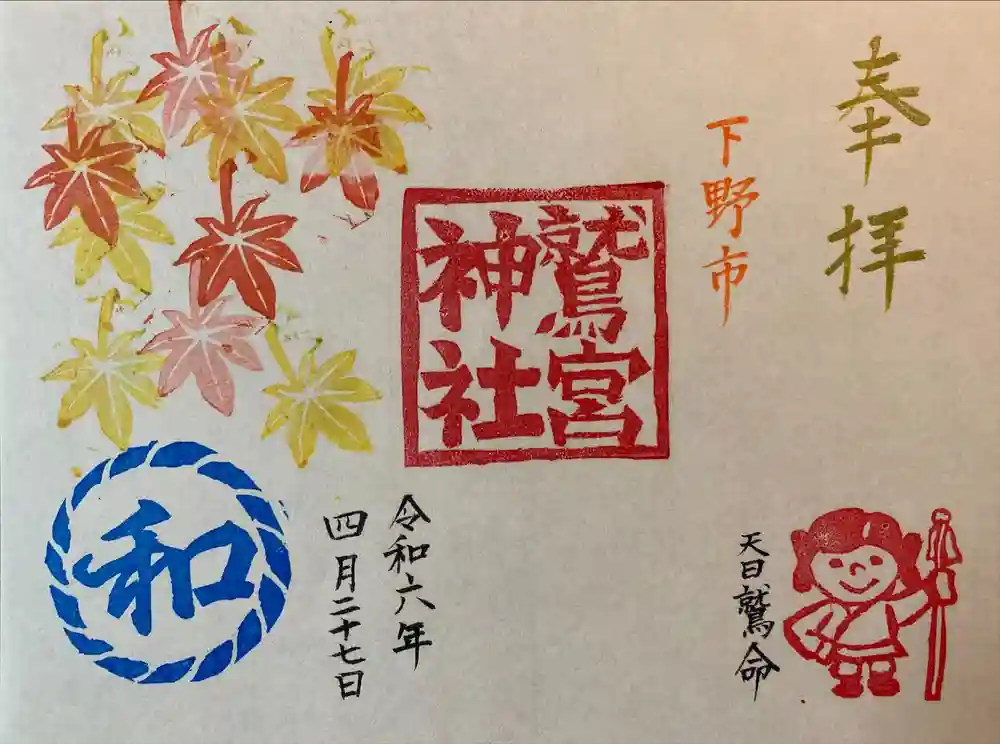 奉拝
下野市
鷲宮
神社
天日鷲命
令和六年
四月二十七日
和